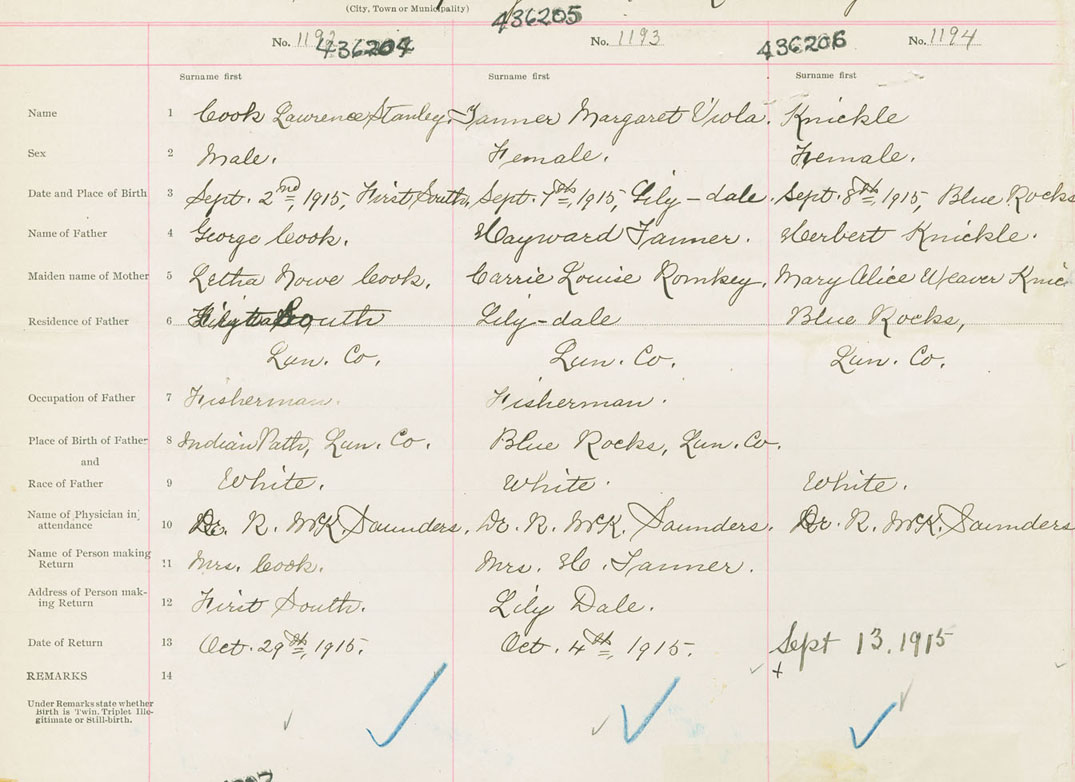 (City, Town or Municipality)
436205
No. 1192 436204 No. 1193 436206 No. 1194
Surname first Surname first Surname first
Name 1 Cook Lawrence Stanley. Tanner Margaret Viola. Knickle
Sex 2 Male. Female. Female.
Date and Place of Birth 3 Sept. 2nd, 1915, First South, Sept. 7th, 1915, Lily-dale. Sept. 8th, 1915, Blue Rocks
Name of Father 4 George Cook. Hayward Tanner. Herbert Knickle.
Maiden name of Mother 5 Letha Nowe Cook. Carrie Louise Romkey. Mary Alice Weaver Knic
Residence of Father 6 South Lily-dale Blue Rocks,
Lun. Co. Lun. Co. Lun. Co.
Occupation of Father 7 Fisherman. Fisherman.
Place of Birth of Father 8 Indian Path, Lun. Co. Blue Rocks, Lun. Co.
and
Race of Father 9 White. White. White.
Name of Physician in attendance 10 Dr. R. McK. Saunders. Dr. R. McK. Saunders. Dr. R. McK. Saunders
Name of Person making Return 11 Mrs. Cook. Mrs. H. Tanner.
Address of Person mak-ing Return 12 First South. Lily Dale.
Date of Return 13 Oct. 29th, 1915. Oct. 4th, 1915. Sept 13. 1915
REMARKS 14
Under Remarks state whether
Birth is Twin. Triplet Ille-
gitimate or Still-birth.